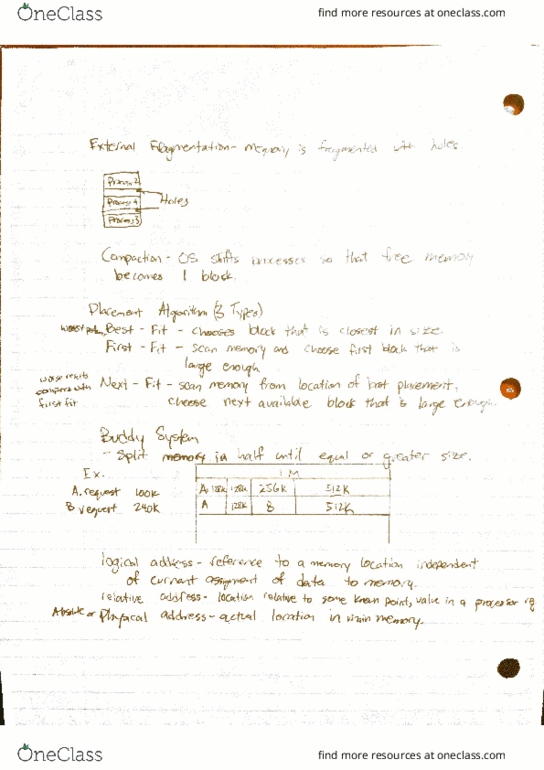 OneClass
find more resources at oneclass.com
External Fragmentation - Memory is fragmented with holes
Process 2
Process 4
Holes
Process 3
Compaction - OS shifts processes so that free memory
becomes 1 block.
Placement Algorithm (3 Types)
Best - Fit - chooses block that is closest in size.
First - Fit - scan memory and choose first block that is
large enough
worse results
compared with
first fit
Next - Fit - scan memory from location of last placement,
choose next available block that is large enough.
Buddy System
- Split memory in half until equal or greater size.
Ex.
1 M
A request 100k
A 128k 128k 256k 512k
B request 240k
A 128k B 512k
logical address - reference to a memory location independent
of current assignment of data to memory.
relative address - location relative to some known point, value in a processor
Absolute or Physical address - actual location in main memory.
OneClass
find more resources at oneclass.com